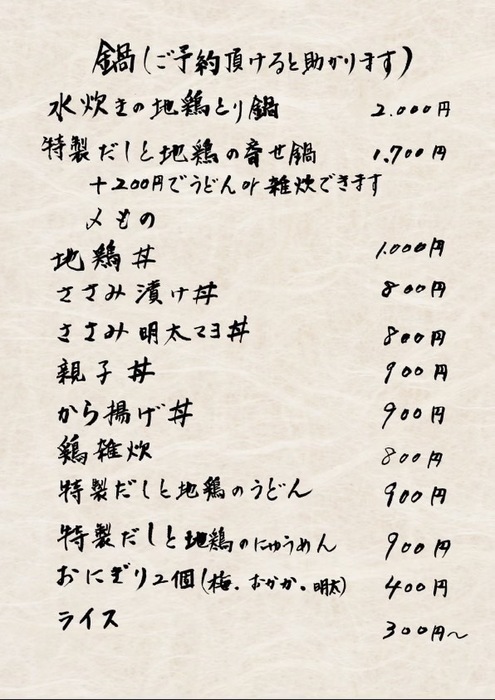 鍋(ご予約頂けると助かります)
水炊きの地鶏とり鍋 2.000円
特製だしと地鶏の寄せ鍋 1.700円
+200円でうどんor雑炊できます
〆もの
地鶏丼 1.000円
ささみ漬け丼 800円
ささみ明太マヨ丼 800円
親子丼 900円
から揚げ丼 900円
鶏雑炊 800円
特製だしと地鶏のうどん 900円
特製だしと地鶏のにゅうめん 900円
おにぎり2個(梅.おかか.明太) 400円
ライス 300円~